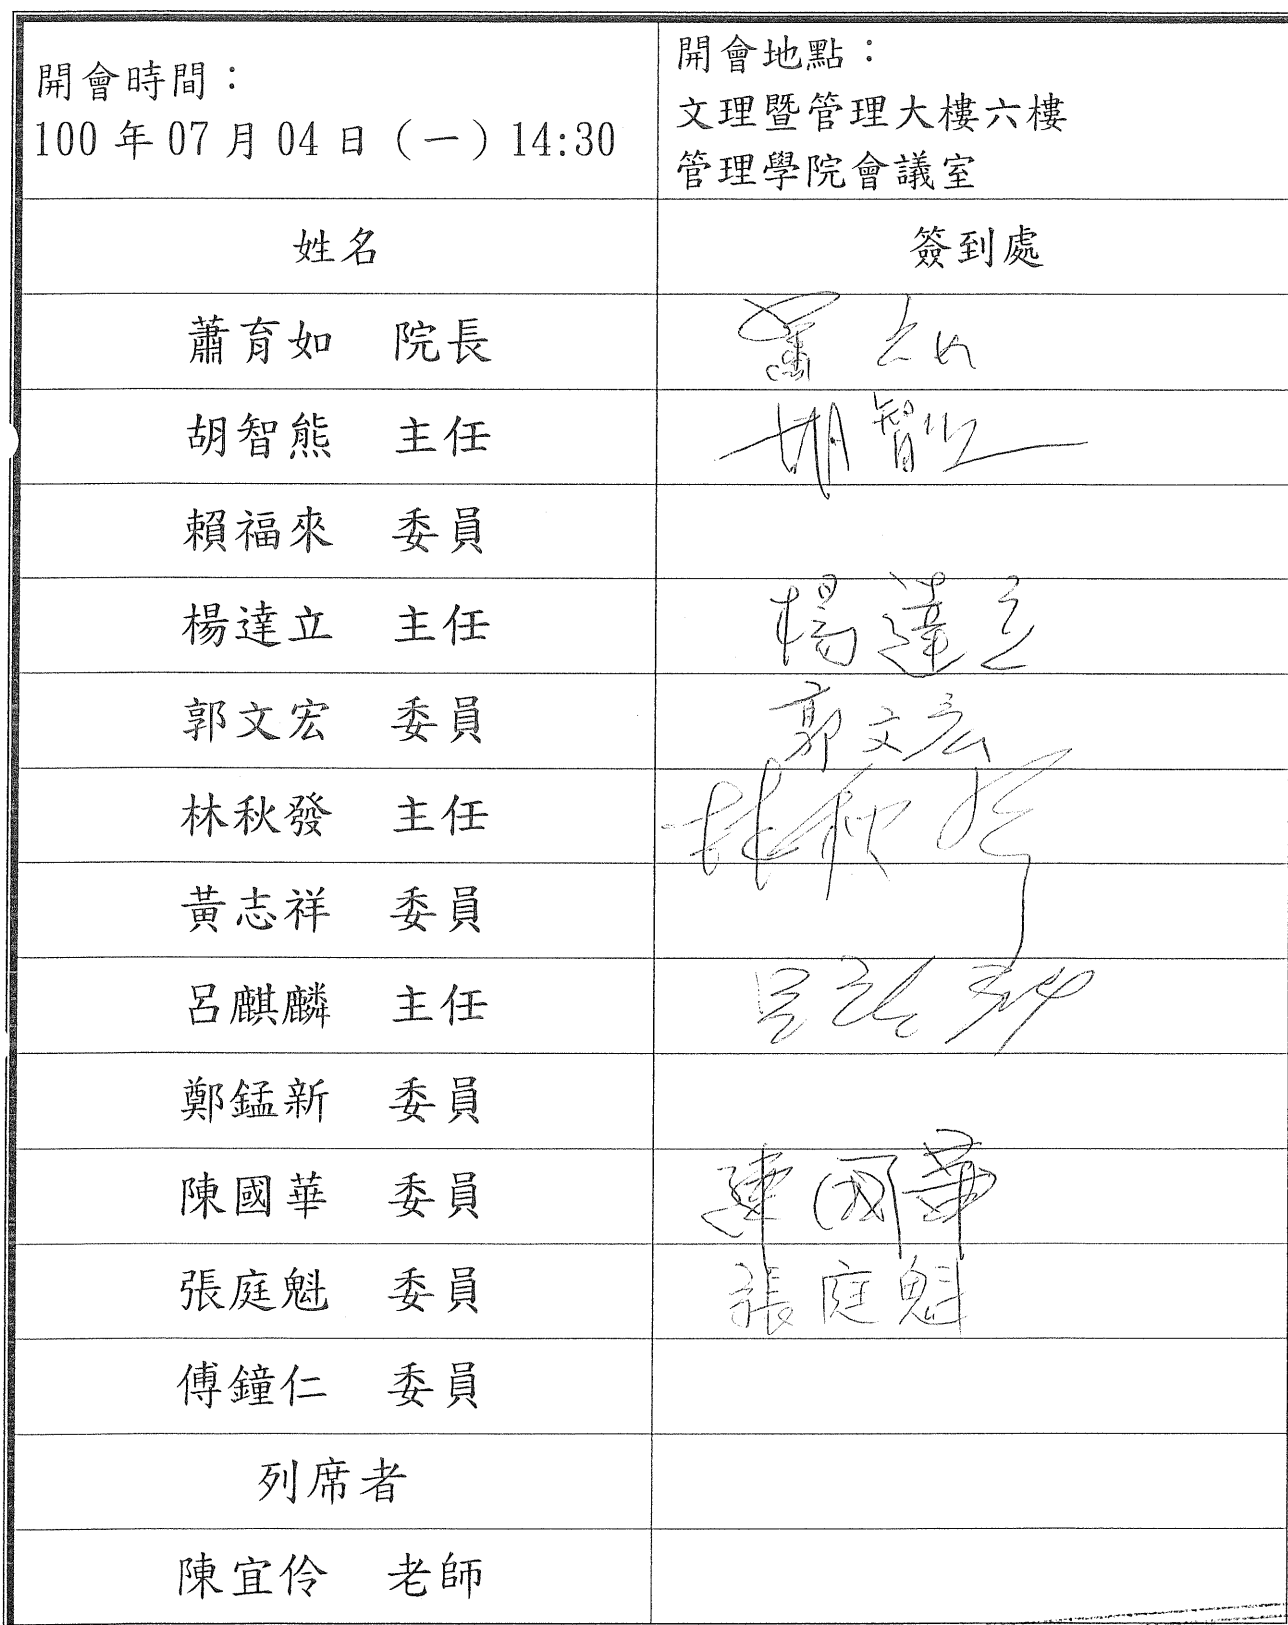 開會時間：
100 年 07 月 04 日（一）14:30
開會地點：
文理暨管理大樓六樓
管理學院會議室
姓名 簽到處
蕭育如 院長 蕭育如
胡智熊 主任 胡智熊
賴福來 委員
楊達立 主任 楊達立
郭文宏 委員 郭文宏
林秋發 主任 林秋發
黃志祥 委員
呂麒麟 主任
鄭錳新 委員
陳國華 委員 陳國華
張庭魁 委員 張庭魁
傅鐘仁 委員
列席者
陳宜伶 老師